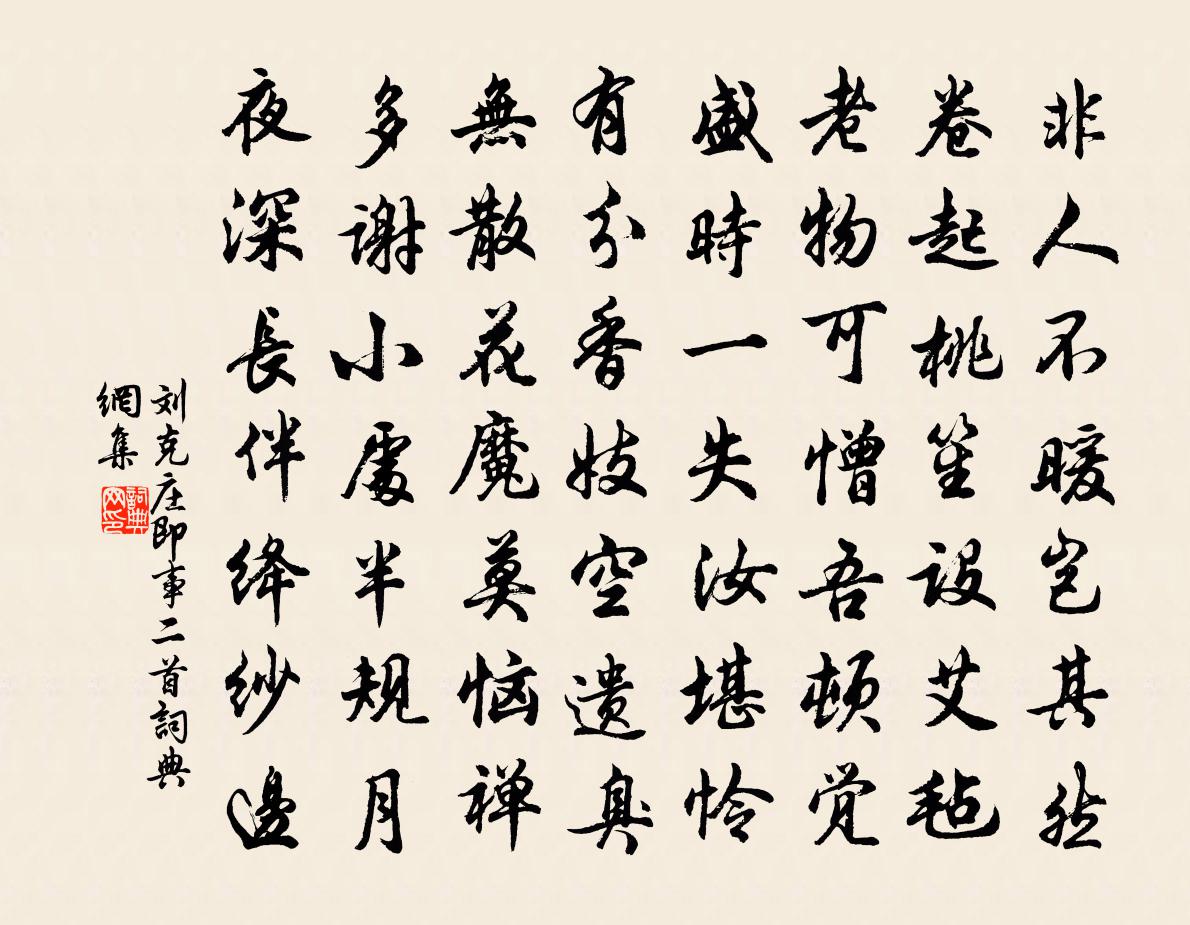 非人不暖岂其然
卷起桃笙設艾毡
老物可憎吾頓覚
盛時一失汝堪怜
有分香妓空遗臭
無散花魔莫恼禅
多谢小窗半規月
夜深長伴绛纱邊
刘克庄即事二首詞典
網集
詞典
网印